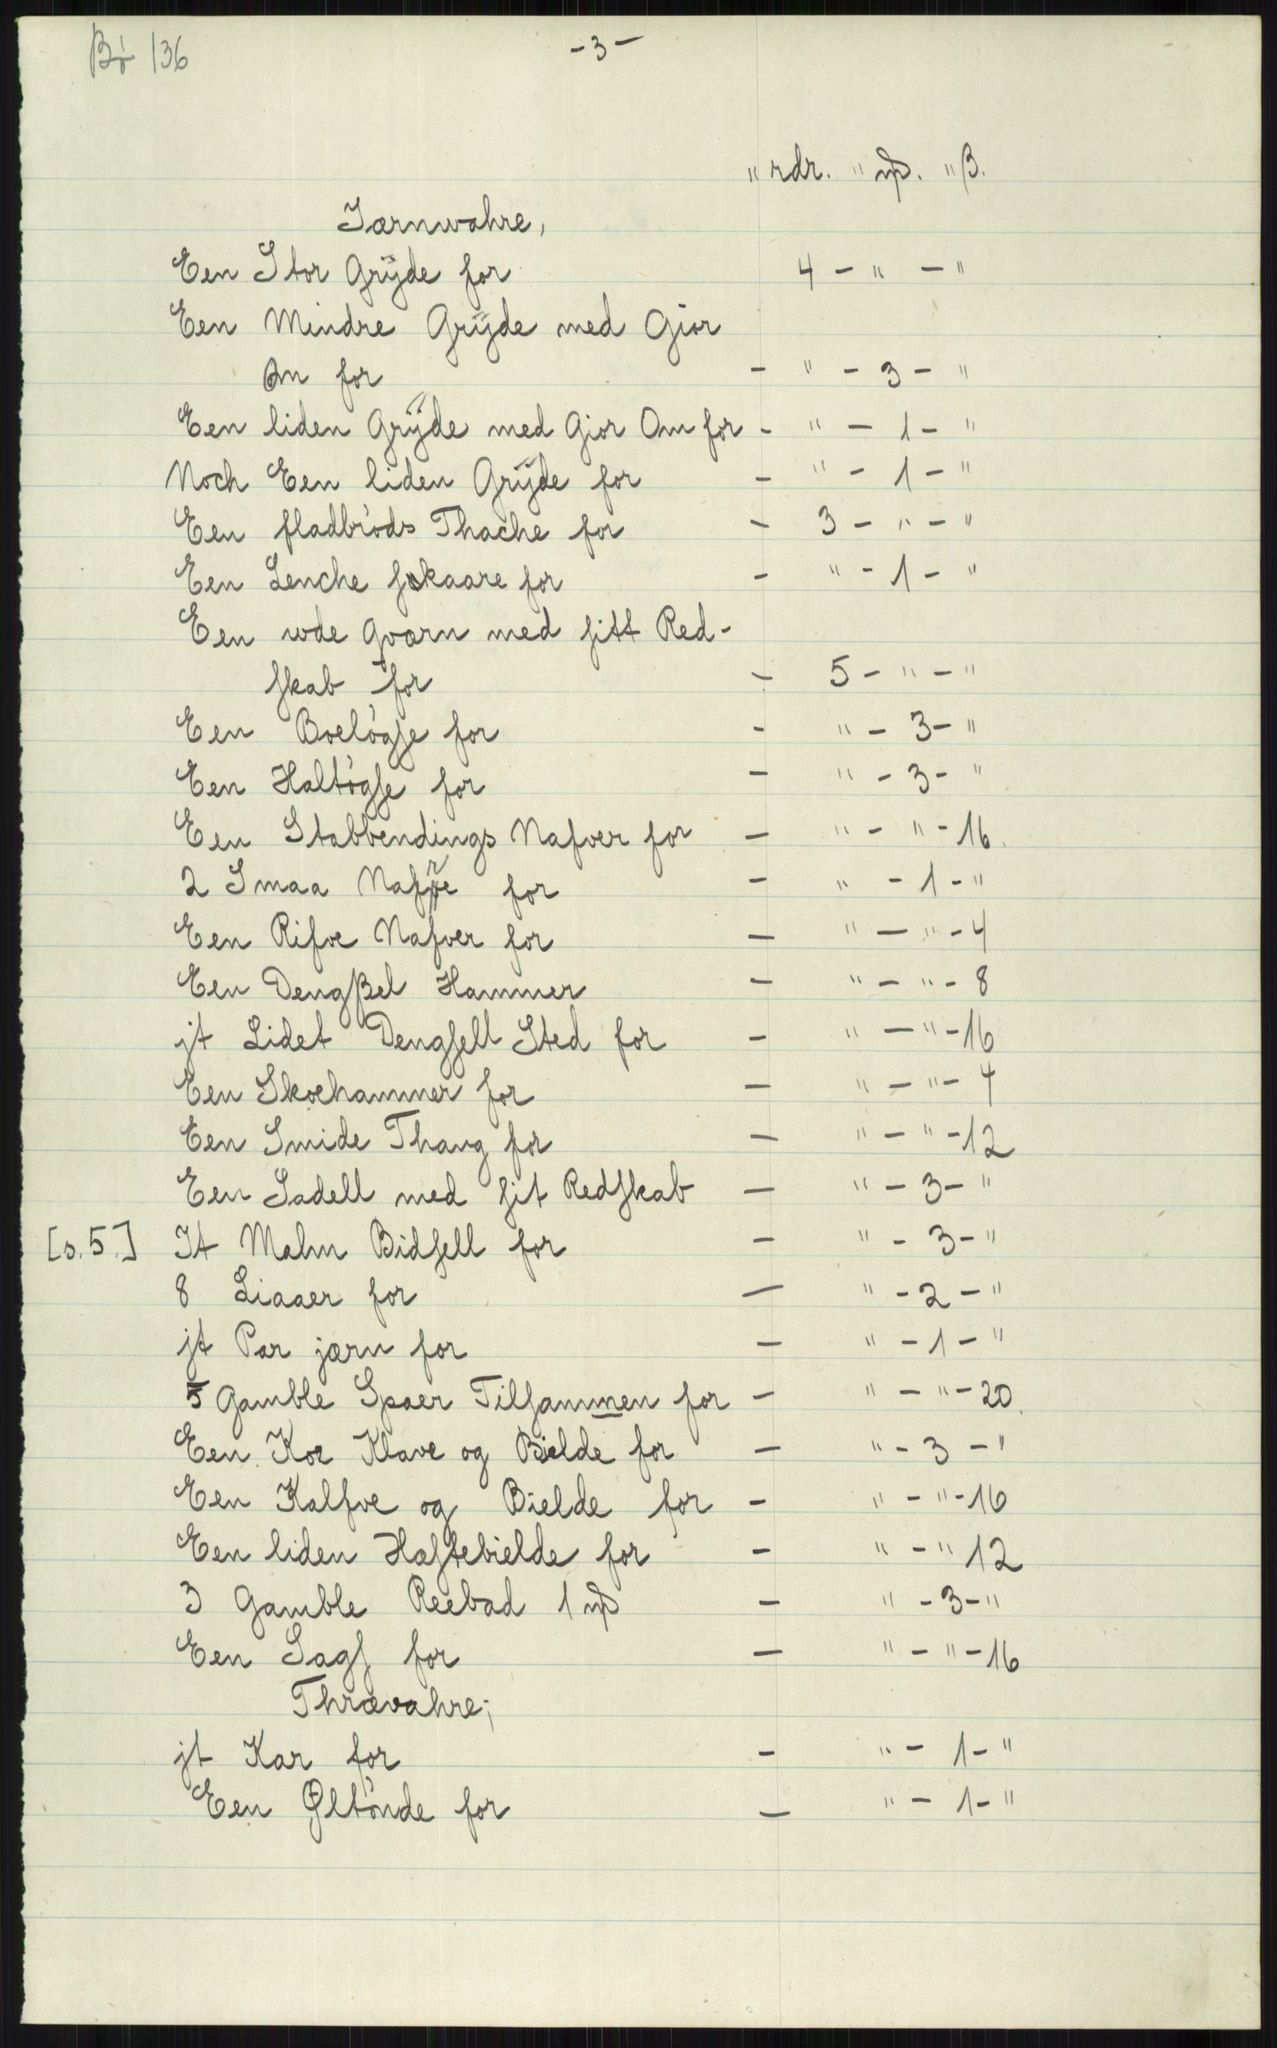 Bö 136
-3-
" rdr. " mß. " β.
Jærnvahre,
Een Stor Grÿde for 4 - " - "
Een Mindre Grÿde med Gior
Om for - " - 3 - "
Een liden Grÿde med Gior Om for - " - 1 - "
Noch Een liden Grÿde for - " - 1 - "
Een fladbröds Thache for - 3 - " - "
Een Lenche fokaare for - " - 1 - "
Een wde Qværn med sitt Red-
skab for - 5 - " - "
Een Boelögse for - " - 3 - "
Een Haltögse for - " - 3 - "
Een Stabbendings Nafver for - " - " - 16.
2 Smaa Nafvre for - " - 1 - "
Een Rifve Nafver for - " - " - 4
Een Dengßel Hammer - " - " - 8
jt Lidet Dengsell Sted for - " - " - 16
Een Skoehammer for - " - " - 4
Een Smide Thang for - " - " - 12
Een Sadell med sit Redskab - " - 3 - "
[s. 5.] It Malm Bidsell for - " - 3 - "
8 Liaaer for - " - 2 - "
jt Par jærn for - " - 1 - "
5 Gamble Spaer Tilsammen for - " - " - 20.
Een Koe Klave og Bielde for - " - 3 - '
Een Kalfve og Bielde for - " - " - 16
Een liden Hæstebielde for - " - " 12
3 Gamble Reebad 1 mß - " - 3 - "
Een Sags for - " - " - 16
Thrævahre;
jt Kar for - " - 1 - "
Een Øltönde for - " - 1 - "